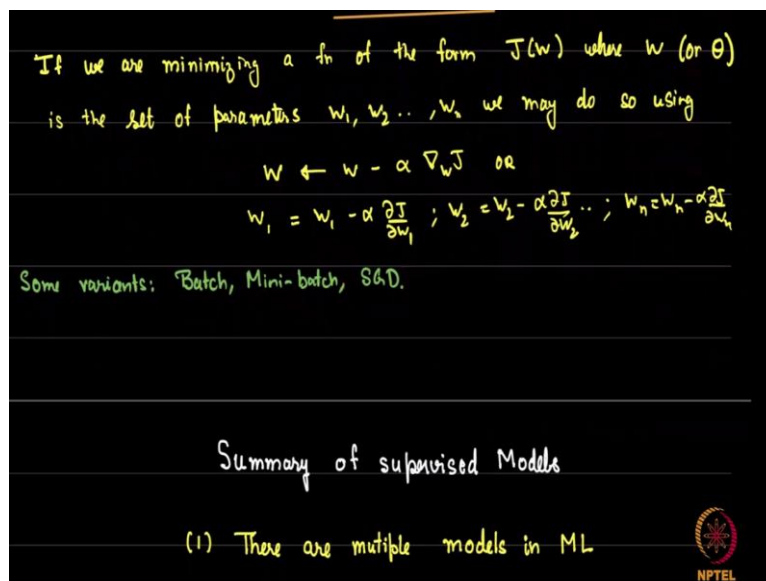 If we are minimizing a fn of the form J(w) where w (or θ)
is the set of parameters w₁, w₂ .. , wₙ we may do so using
w ← w - α ∇_w J OR
w₁ = w₁ - α ∂J/∂w₁ ; w₂ = w₂ - α ∂J/∂w₂ .. ; wₙ = wₙ - α ∂J/∂wₙ
Some variants: Batch, Mini-batch, SGD.
Summary of supervised Models
(1) There are mutiple models in ML
NPTEL